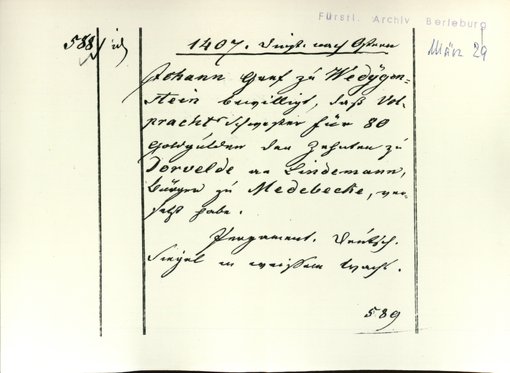 Fürstl. Archiv Berleburg
März 29
588
1407. Dingt. nach Ostern
Johann Graf zu Wedygen-
stein bewilligt, daß Vol-
pracht Schwester für 80
Goldgülden den Zehnten zu
Dorvelde an Lindemann,
Bürger zu Medebecke, ver-
setzt habe.
Pergament. Deutsch.
Siegel in weissem Wachs.
589